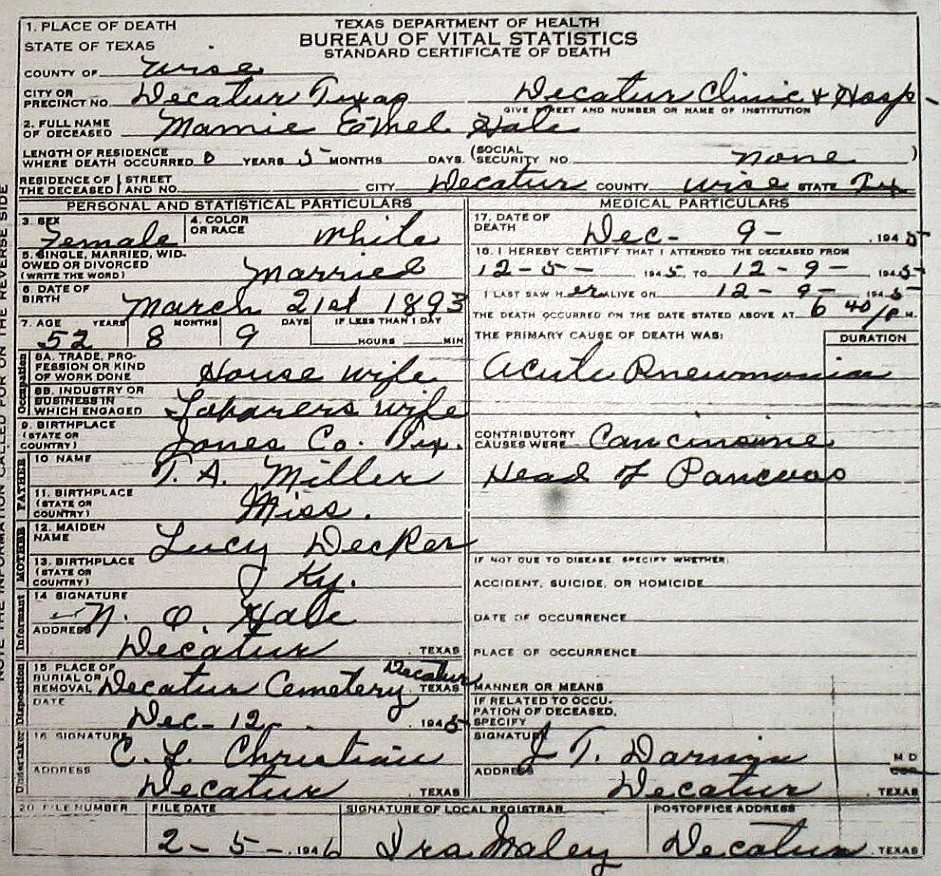 TEXAS DEPARTMENT OF HEALTH
BUREAU OF VITAL STATISTICS
STANDARD CERTIFICATE OF DEATH
1. PLACE OF DEATH
STATE OF TEXAS
COUNTY OF Wise
CITY OR PRECINCT NO. Decatur Texas Decatur Clinic + Hosp-
GIVE STREET AND NUMBER OR NAME OF INSTITUTION
2. FULL NAME OF DECEASED Mamie Ethel Hale
LENGTH OF RESIDENCE WHERE DEATH OCCURRED 0 YEARS 5 MONTHS DAYS. (SOCIAL SECURITY NO. none )
RESIDENCE OF THE DECEASED STREET AND NO. CITY Decatur COUNTY Wise STATE Tx
PERSONAL AND STATISTICAL PARTICULARS
3. SEX Female 4. COLOR OR RACE White
5. SINGLE, MARRIED, WIDOWED OR DIVORCED (WRITE THE WORD) Married
6. DATE OF BIRTH March 21st 1893
7. AGE YEARS MONTHS DAYS IF LESS THAN 1 DAY
52 8 9 HOURS MIN
Occupation
8A. TRADE, PROFESSION OR KIND OF WORK DONE House wife
8B. INDUSTRY OR BUSINESS IN WHICH ENGAGED Laborers wife
9. BIRTHPLACE (STATE OR COUNTRY) Jones Co. Tex.
FATHER
10 NAME T. A. Miller
11. BIRTHPLACE (STATE OR COUNTRY) Miss.
MOTHER
12. MAIDEN NAME Lucy Decker
13. BIRTHPLACE (STATE OR COUNTRY) Ky.
Informant
14 SIGNATURE N. O. Hale
ADDRESS Decatur TEXAS
Disposition
15 PLACE OF BURIAL OR REMOVAL Decatur Cemetery Decatur TEXAS
DATE Dec-12- 1945
Undertaker
16 SIGNATURE C. L. Christian
ADDRESS Decatur TEXAS
MEDICAL PARTICULARS
17. DATE OF DEATH Dec- 9- 1945
18. I HEREBY CERTIFY THAT I ATTENDED THE DECEASED FROM
12-5- 1945 TO 12-9- 1945
I LAST SAW HER ALIVE ON 12-9- 1945
THE DEATH OCCURRED ON THE DATE STATED ABOVE AT 6 40/P M.
THE PRIMARY CAUSE OF DEATH WAS: DURATION
Acute Pneumonia
CONTRIBUTORY CAUSES WERE
Head of Pancreas
IF NOT DUE TO DISEASE, SPECIFY WHETHER:
ACCIDENT, SUICIDE, OR HOMICIDE
DATE OF OCCURRENCE
PLACE OF OCCURRENCE
MANNER OR MEANS
IF RELATED TO OCCUPATION OF DECEASED, SPECIFY
SIGNATURE J. T. M D
ADDRESS Decatur TEXAS
20. FILE NUMBER FILE DATE SIGNATURE OF LOCAL REGISTRAR POSTOFFICE ADDRESS
2-5-1946 Ira Maley Decatur TEXAS
NOTE THE INFORMATION CALLED FOR ON THE REVERSE SIDE